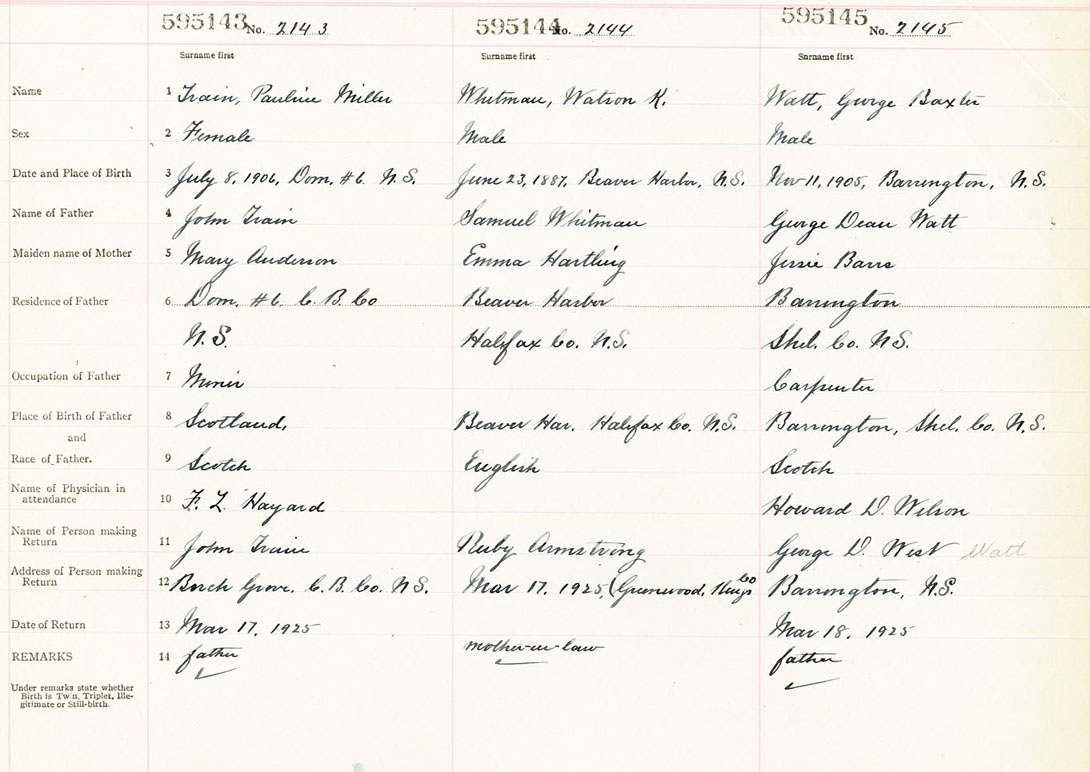 595143 No. 2143 595144 No. 2144 595145 No. 2145
Surname first Surname first Surname first
Name 1 Train, Pauline Miller Whitman, Watson K. Watt, George Baxter
Sex 2 Female Male Male
Date and Place of Birth 3 July 8, 1906, Dom. #6 N.S. June 23, 1887, Beaver Harbor, N.S. Nov 11, 1905, Barrington, N.S.
Name of Father 4 John Train Samuel Whitman George Dean Watt
Maiden name of Mother 5 Mary Anderson Emma Hartling Jessie Barss
Residence of Father 6 Dom. #6 C.B. Co Beaver Harbor Barrington
N.S. Halifax Co. N.S. Shel. Co. N.S.
Occupation of Father 7 Miner Carpenter
Place of Birth of Father 8 Scotland, Beaver Har. Halifax Co. N.S. Barrington, Shel. Co. N.S.
and
Race of Father. 9 Scotch English Scotch
Name of Physician in
attendance 10 F. L. Hayard Howard D. Wilson
Name of Person making
Return 11 John Train Ruby Armstrong George D. West Watt
Address of Person making
Return 12 Birch Grove. C.B. Co. N.S. Mar 17, 1925, (Greenwood, Kings Co Barrington, N.S.
Date of Return 13 Mar 17, 1925 Mar 18, 1925
REMARKS 14 father mother-in-law father
Under remarks state whether
Birth is Twin, Triplet, Ille-
gitimate or Still-birth.